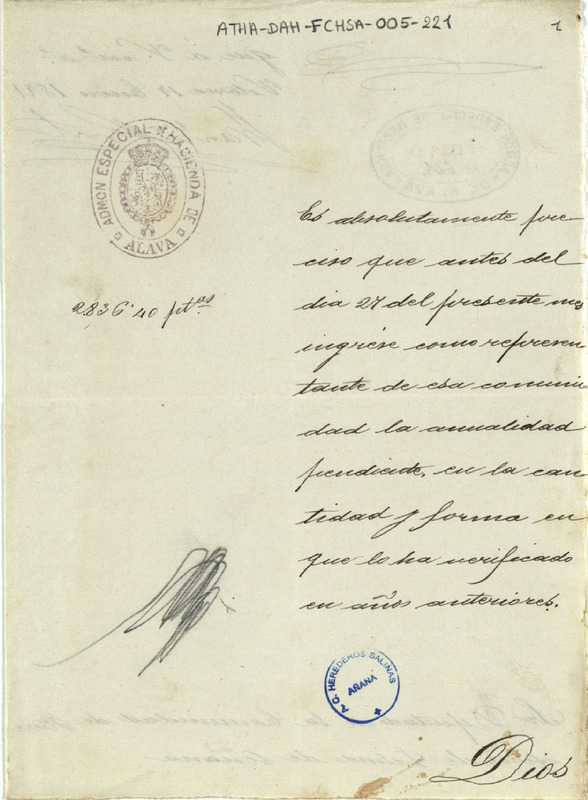 ATHA-DAH-FCHSA-005-221
1
ADMON ESPECIAL DE HACIENDA DE
ALAVA
2.836'40 ptas
Es absolutamente pre-
ciso que antes del
dia 27 del presente mes
ingrese como represen
tante de esa comuni
dad la anualidad
pendiente, en la can
tidad y forma en
que lo ha verificado
en años anteriores.
G. HEREDEROS SALINAS
AÑANA
Dios